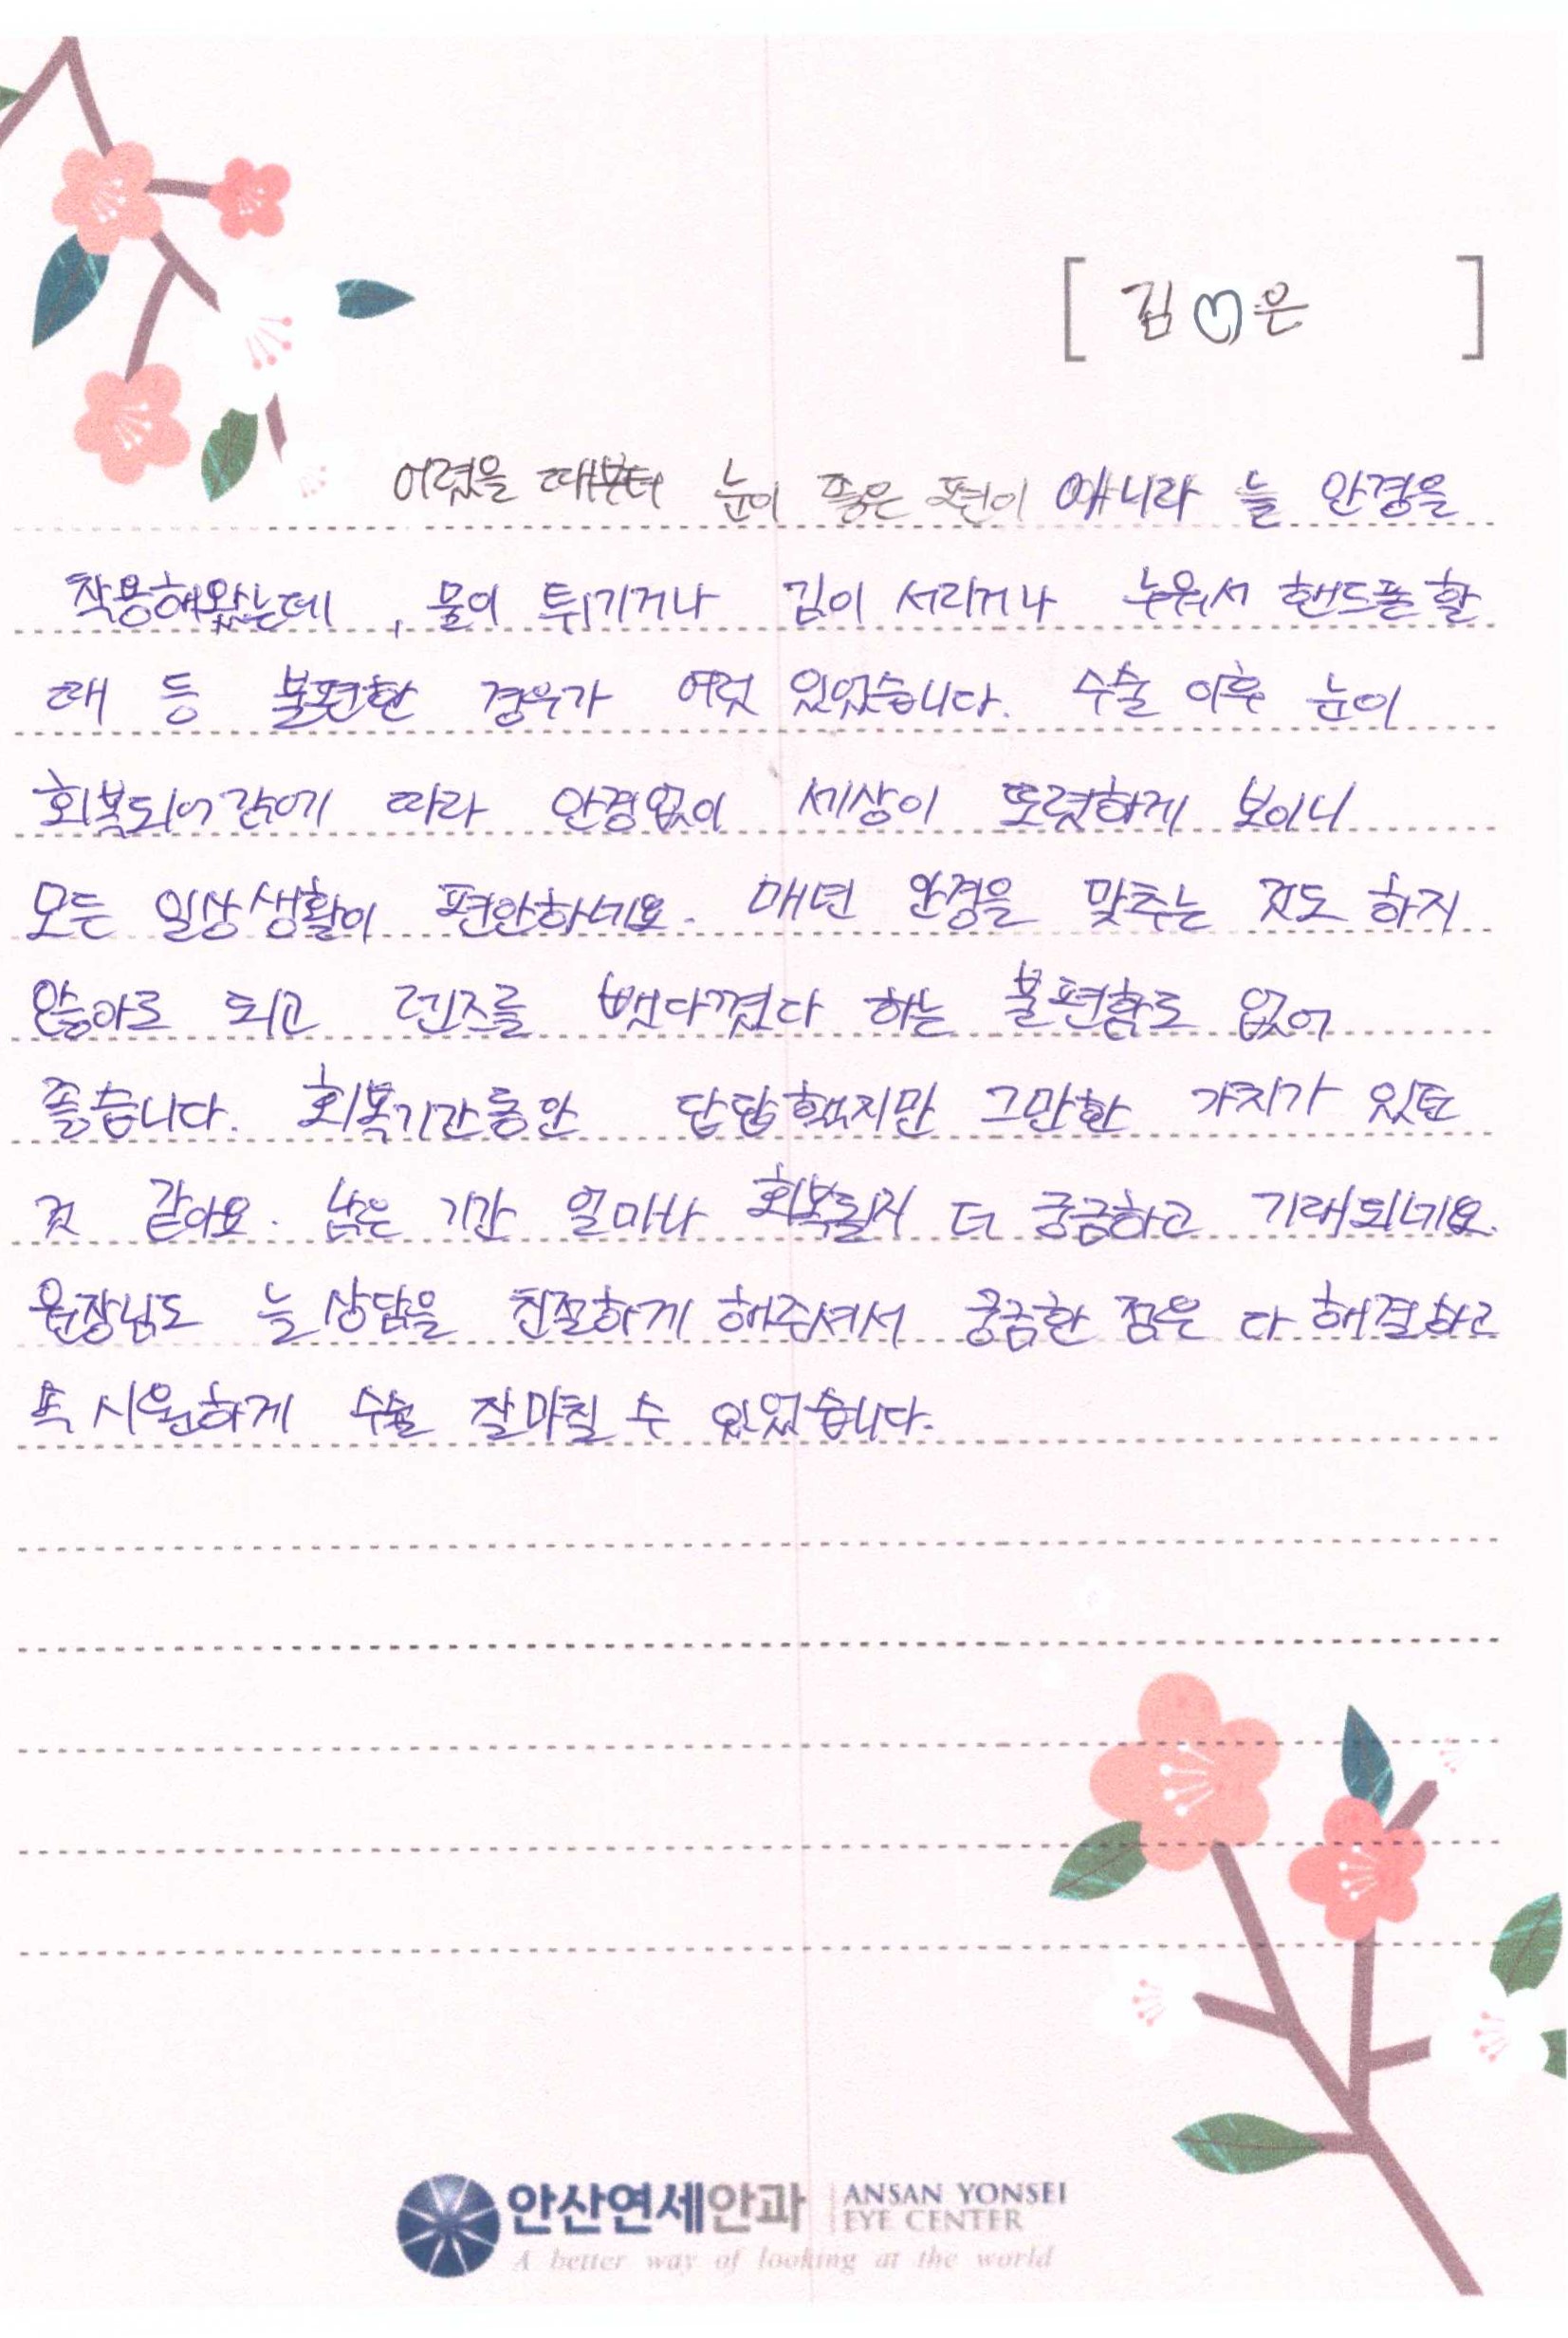 [ 김♡은 ]
어렸을 때부터 눈이 좋은 편이 아니라 늘 안경을
착용해왔는데, 물이 튀기거나 김이 서리거나 누워서 핸드폰할
때 등 불편한 경우가 여럿 있었습니다. 수술 이후 눈이
회복되어감에 따라 안경없이 세상이 또렷하게 보이니
모든 일상생활이 편안하네요. 매년 안경을 맞추는 것도 하지
않아도 되고 렌즈를 뺏다꼈다 하는 불편함도 없어
좋습니다. 회복기간동안 답답했지만 그만한 가치가 있던
것 같아요. 남은 기간 얼마나 회복될지 더 궁금하고 기대되네요.
원장님도 늘 상담을 친절하게 해주셔서 궁금한 점은 다 해결하고
속 시원하게 수술 잘 마칠 수 있었습니다.
안산연세안과 ANSAN YONSEI
EYE CENTER
A better way of looking at the world